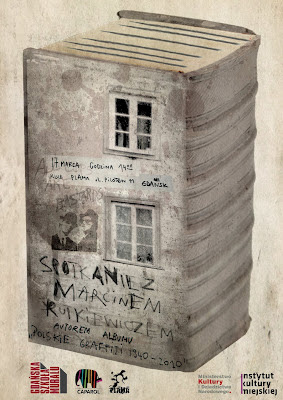 17 MARCA GODZINA 14:00
AULA PLAMA UL. PILOTÓW 11 GDAŃSK
SPOTKANIE Z
MARCINEM
RUTKIEWICZEM
AUTOREM ALBUMU
"POLSKIE GRAFFITI 1940-2010"
GDAŃSKA
SZKOŁA
MURALU
CAPAROL
PLAMA
Ministerstwo
Kultury
i Dziedzictwa
Narodowego
instytut
kultury
miejskiej